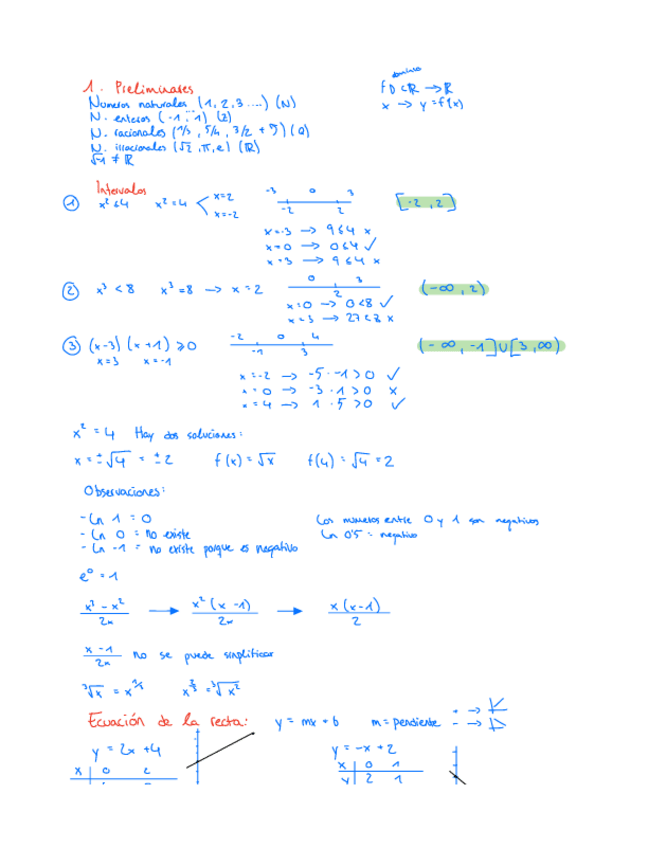 1. Preliminares
dominio
f D C ℝ → ℝ
x → y = f(x)
Numeros naturales (1, 2, 3 ....) (N)
N. enteros (-1, 1) (Z)
N. racionales (1/3, 5/4, 3/2 + 5) (Q)
N. irracionales (√2, π, e) (ℝ)
√-1 ≠ ℝ
Intervalos
① x² ≤ 4 x² = 4 < x = 2 x = -2
-3 0 3
-2 2
[-2, 2]
x = -3 → 9 ≤ 4 x
x = 0 → 0 ≤ 4 ✓
x = 3 → 9 ≤ 4 x
② x³ < 8 x³ = 8 → x = 2
0 3
2
(-∞, 2)
x = 0 → 0 < 8 ✓
x = 3 → 27 < 8 x
③ (x-3) (x+1) ≥ 0
x = 3 x = -1
-2 0 4
-1 3
(-∞, -1] U [3, ∞)
x = -2 → -5 · -1 > 0 ✓
x = 0 → -3 · 1 > 0 x
x = 4 → 1 · 5 > 0 ✓
x² = 4 Hay dos soluciones:
x = ±√4 = ±2 f(x) = √x f(4) = √4 = 2
Observaciones:
- Ln 1 = 0
- Ln 0 = no existe
- Ln -1 = no existe porque es negativo
Los numeros entre 0 y 1 son negativos
Ln 0'5 = negativo
e⁰ = 1
x³ - x² / 2x → x² (x - 1) / 2x → x (x - 1) / 2
x - 1 / 2x no se puede simplificar
³√x = x^1/3 x^2/3 = ³√x²
Ecuación de la recta: y = mx + b m = pendiente + → - →
y = 2x + 4
x | 0 2
y = -x + 2
x | 0 1
y | 2 1